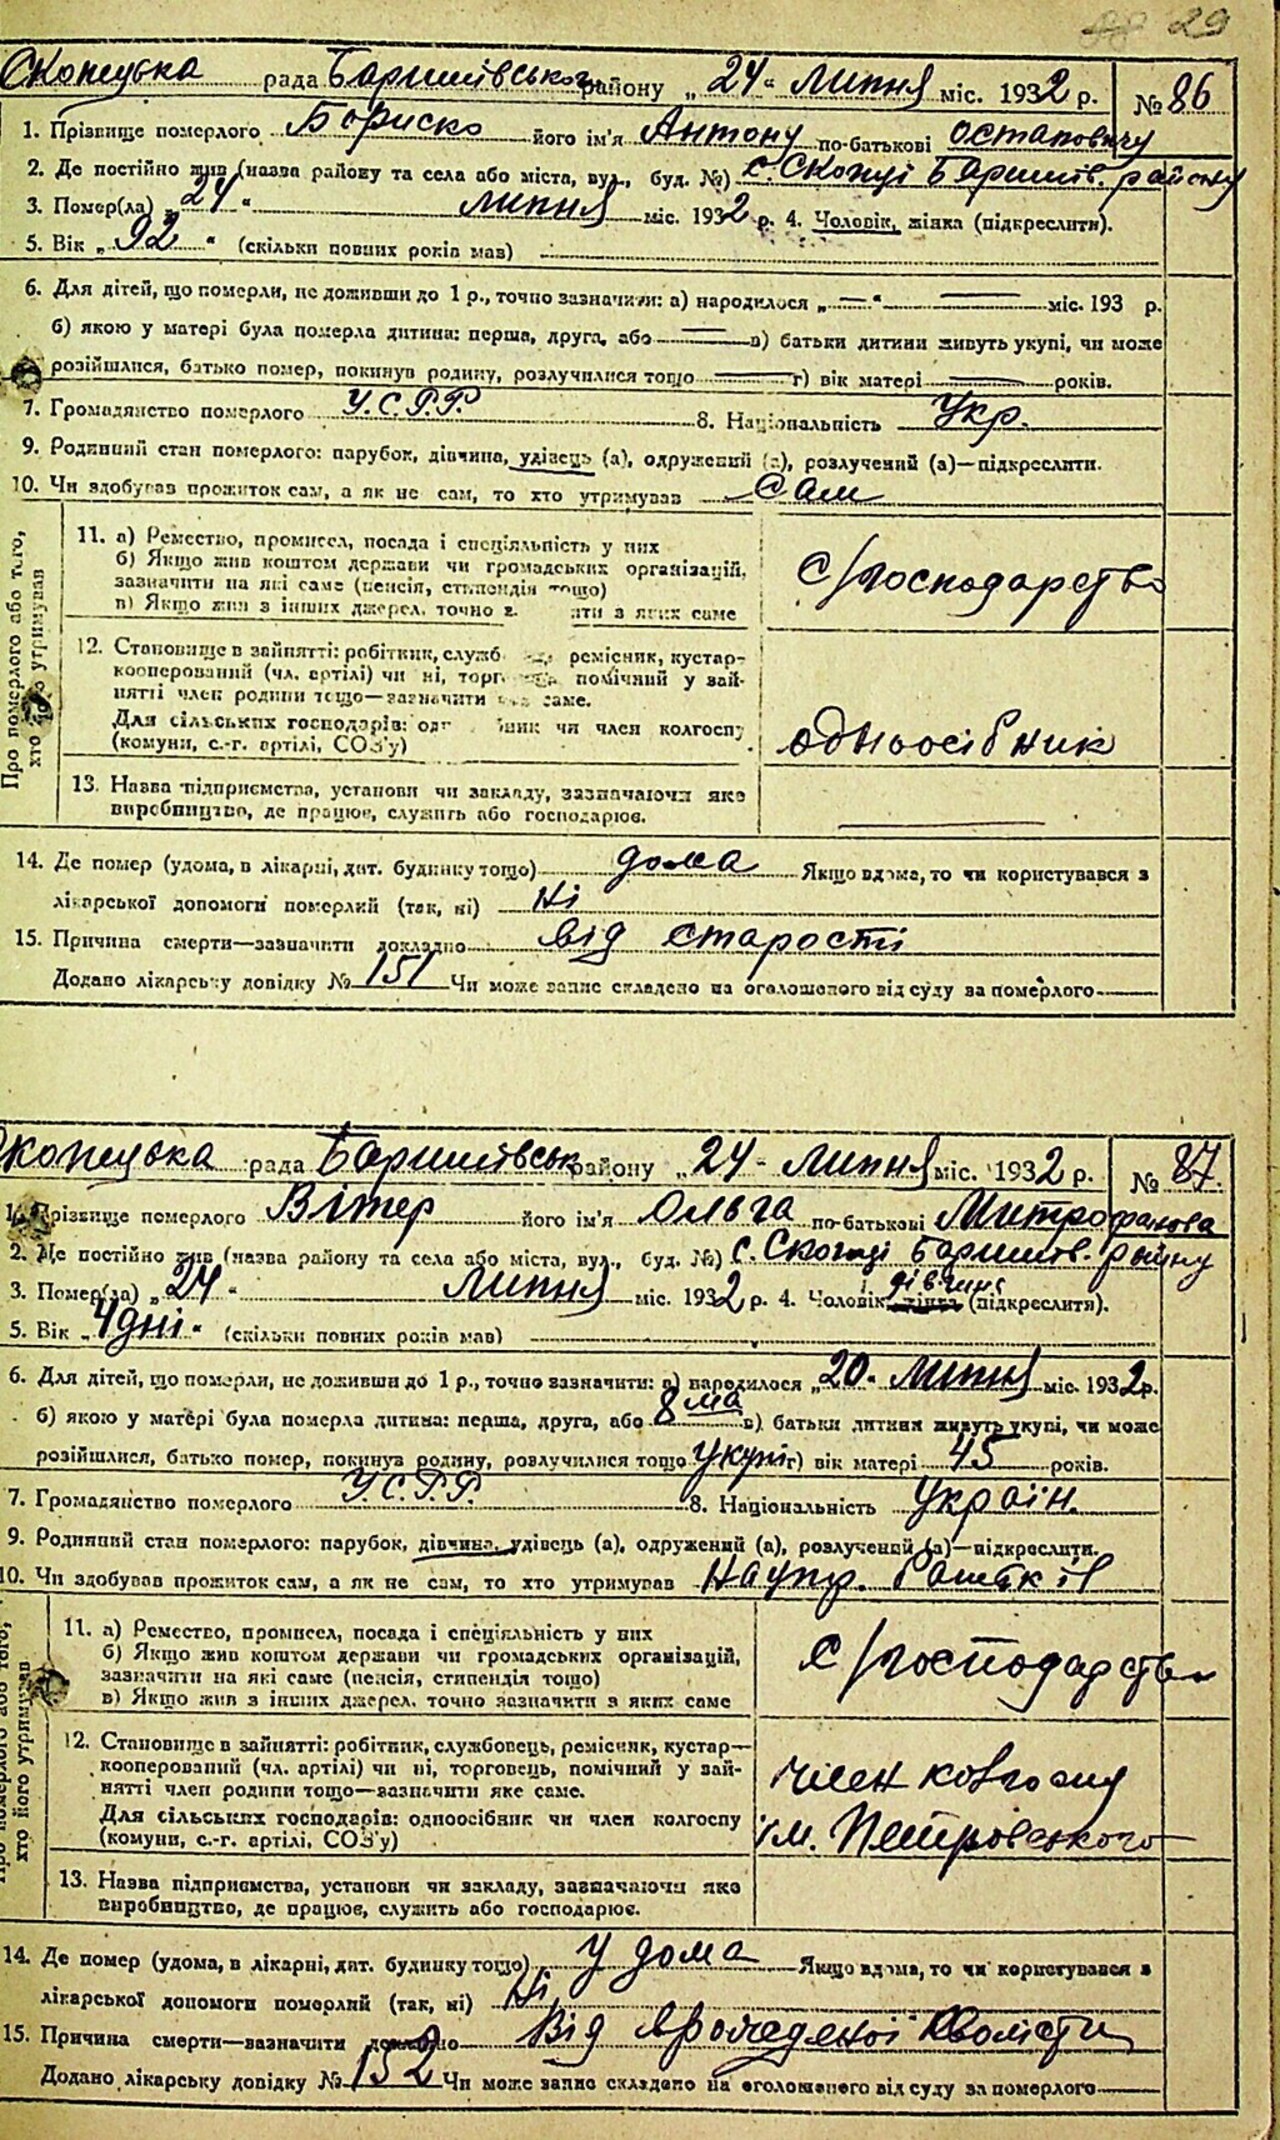 29
Скопецька рада Баришівського району „24“ липня міс. 1932 р. № 86
1. Прізвище померлого Бориско його ім'я Антону по-батькові Остаповичу
2. Де постійно жив (назва району та села або міста, вул., буд. №) с. Скопці Баришів. району
3. Помер(ла) „24“ липня міс. 1932 р. 4. Чоловік, жінка (підкреслити).
5. Вік „92“ (скільки повних років мав)
6. Для дітей, що померли, не доживши до 1 р., точно зазначити: а) народилося „—“ — міс. 193 р.
б) якою у матері була померла дитина: перша, друга, або — в) батьки дитини живуть укупі, чи може
розійшлися, батько помер, покинув родину, розлучилися тощо — г) вік матері — років.
7. Громадянство померлого У.С.Р.Р. 8. Національність Укр.
9. Родинний стан померлого: парубок, дівчина, удівець (а), одружений (а), розлучений (а)—підкреслити.
10. Чи здобував прожиток сам, а як не сам, то хто утримував Сам
Про померлого або того,
хто утримував
11. а) Ремество, промисел, посада і спеціяльність у них
б) Якщо жив коштом держави чи громадських організацій,
зазначити на які саме (пенсія, стипендія тощо)
в) Якщо жив з інших джерел, точно з яких саме
с/господарство
12. Становище в зайнятті: робітник, служб ремісник, кустар-
кооперований (чл. артілі) чи ні, торг помічний у зай-
нятті член родини тощо—зазначити яке саме.
Для сільських господарів: одноосібник чи член колгоспу
(комуни, с.-г. артілі, СОЗ'у)
одноосібник
13. Назва підприємства, установи чи закладу, зазначаючи яке
виробництво, де працює, служить або господарює. —
14. Де помер (удома, в лікарні, дит. будинку тощо) дома Якщо вдома, то чи користувався з
лікарської допомоги померлий (так, ні) Ні
15. Причина смерти—зазначити докладно від старості
Додано лікарську довідку № 151 Чи може запис складено на оголошеного від суду за померлого
Скопецька рада Баришівськ району „24“ липня міс. 1932 р. № 87.
1. Прізвище померлого Вітер його ім'я Ольга по-батькові Митрофанова
2. Де постійно жив (назва району та села або міста, вул., буд. №) с. Скопці Баришів. району
3. Помер(ла) „24“ липня міс. 1932 р. 4. Чоловік, жінка дівчина (підкреслити).
5. Вік „4 дні“ (скільки повних років мав)
6. Для дітей, що померли, не доживши до 1 р., точно зазначити: а) народилося „20“ липня міс. 1932 р.
б) якою у матері була померла дитина: перша, друга, або 8ма в) батьки дитини живуть укупі, чи може
розійшлися, батько помер, покинув родину, розлучилися тощо укупі г) вік матері 45 років.
7. Громадянство померлого У.С.Р.Р. 8. Національність Україн.
9. Родинний стан померлого: парубок, дівчина, удівець (а), одружений (а), розлучений (а)—підкреслити.
10. Чи здобував прожиток сам, а як не сам, то хто утримував На утр. батьків
Про померлого або того,
хто його утримував
11. а) Ремество, промисел, посада і спеціяльність у них
б) Якщо жив коштом держави чи громадських організацій,
зазначити на які саме (пенсія, стипендія тощо)
в) Якщо жив з інших джерел, точно зазначити з яких саме
с/господарство
12. Становище в зайнятті: робітник, службовець, ремісник, кустар—
кооперований (чл. артілі) чи ні, торговець, помічний у зай-
нятті член родини тощо—зазначити яке саме.
Для сільських господарів: одноосібник чи член колгоспу
(комуни, с.-г. артілі, СОЗ'у)
член колгоспу
ім. Петровського
13. Назва підприємства, установи чи закладу, зазначаючи яке
виробництво, де працює, служить або господарює.
14. Де помер (удома, в лікарні, дит. будинку тощо) у дома Якщо вдома, то чи користувався з
лікарської допомоги померлий (так, ні) Ні
15. Причина смерти—зазначити докладно Від врожденої кволісти
Додано лікарську довідку № 152 Чи може запис складено на оголошеного від суду за померлого